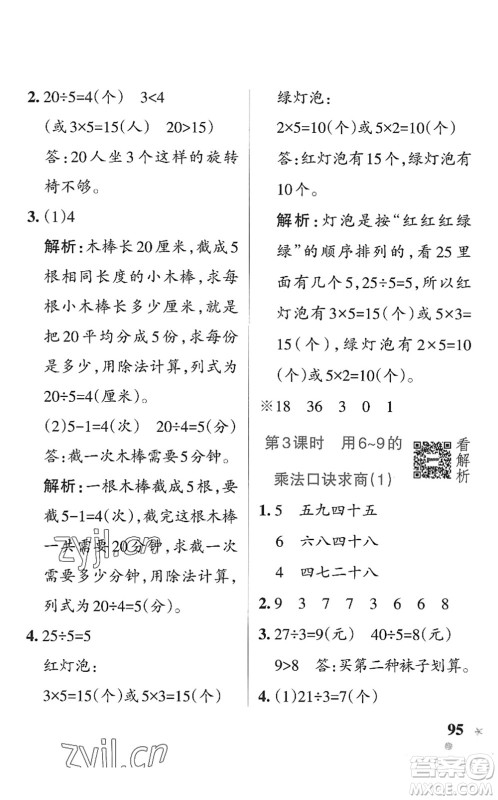 2. 20÷5=4(个) 3<4
(或3×5=15(人) 20>15)
答:20人坐3个这样的旋转
椅不够。
3. (1)4
解析:木棒长20厘米,截成5
根相同长度的小木棒,求每
根小木棒长多少厘米,就是
把20平均分成5份,求每份
是多少,用除法计算,列式为
20÷5=4(厘米)。
(2)5-1=4(次) 20÷4=5(分)
答:截一次木棒需要5分钟。
解析:一根木棒截成5根需要
截5-1=4(次),截完这根木棒
一共需要20分钟,求截一次
需要多少分钟,用除法计算,
列式为20÷4=5(分)。
4. 25÷5=5
红灯泡:
3×5=15(个)(或5×3=15(个))
绿灯泡:
2×5=10(个)(或5×2=10(个))
答:红灯泡有15个,绿灯泡有
10个。
解析:灯泡是按“红红红绿
绿”的顺序排列的,看25里
面有几个5,25÷5=5(个),红
灯泡有3×5=15(个)或5×3=
15(个),绿灯泡有2×5=10
(个)或5×2=10(个)。
※18 36 3 0 1
第3课时 用6~9的
乘法口诀求商(1)
看解析
1. 5 五九四十五
6 六八四十八
4 四七二十八
2. 9 3 7 3 7 8 8
3. 27÷3=9(元) 40÷5=8(元)
9>8 答:买第二种袜子划算。
4. (1)21÷3=7(个)
95
zyjl.cn
zvil.cn
答案圈
MXQE.COM